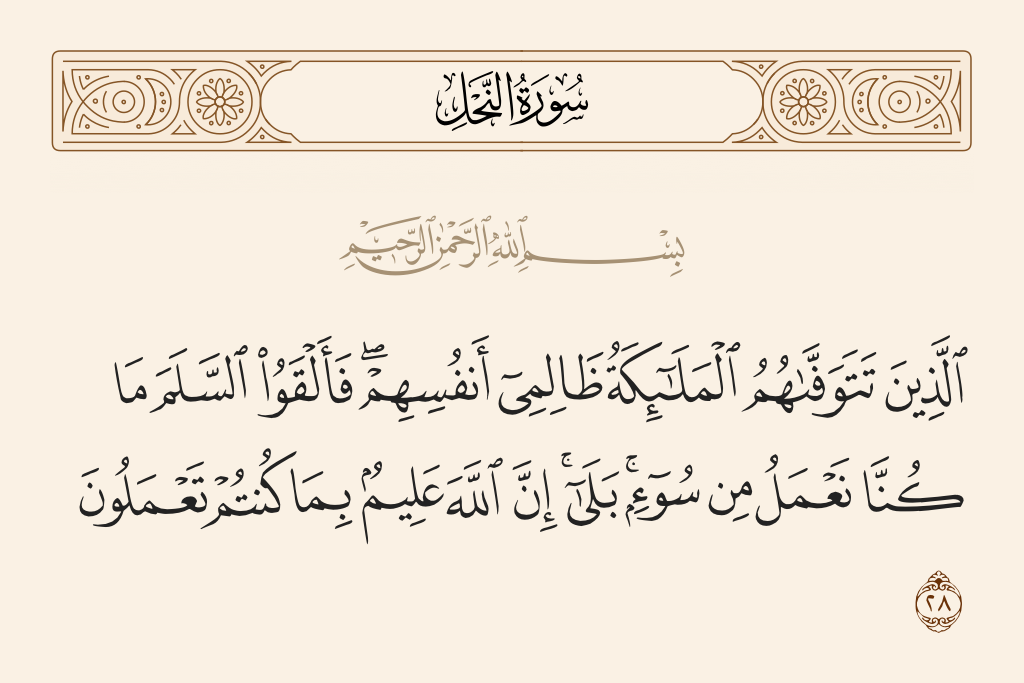 سُورَةُ النَّحْلِ
بِسْمِ ٱللَّهِ ٱلرَّحْمَٰنِ ٱلرَّحِيمِ
ٱلَّذِينَ تَتَوَفَّىٰهُمُ ٱلْمَلَـٰٓئِكَةُ ظَالِمِىٓ أَنفُسِهِمْ ۖ فَأَلْقَوُا۟ ٱلسَّلَمَ مَا
كُنَّا نَعْمَلُ مِن سُوٓءٍۭ ۚ بَلَىٰٓ ۚ إِنَّ ٱللَّهَ عَلِيمٌۢ بِمَا كُنتُمْ تَعْمَلُونَ
٢٨